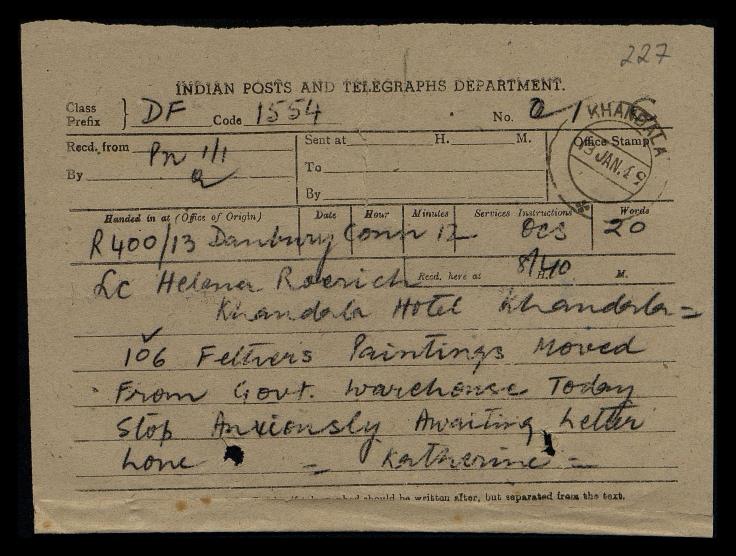 227
INDIAN POSTS AND TELEGRAPHS DEPARTMENT.
Class Prefix } DF Code 1554 No.
KHANDALA
13 JAN. 49
Office Stamp
Recd. from Pn 1/1 Sent at H. M.
To
By
By
Handed in at (Office of Origin) Date Hour Minutes Services Instructions Words
R400/13 Danbury Conn 12 Ocs 20
Recd. here at 8/40 H. M.
Lc Helena Roerich
Khandala Hotel Khandala =
106 Fathers Paintings Moved
From Govt. Warehouse Today
Stop Anxiously Awaiting Letter
Love = Katherine =
should be written after, but separated from the text.